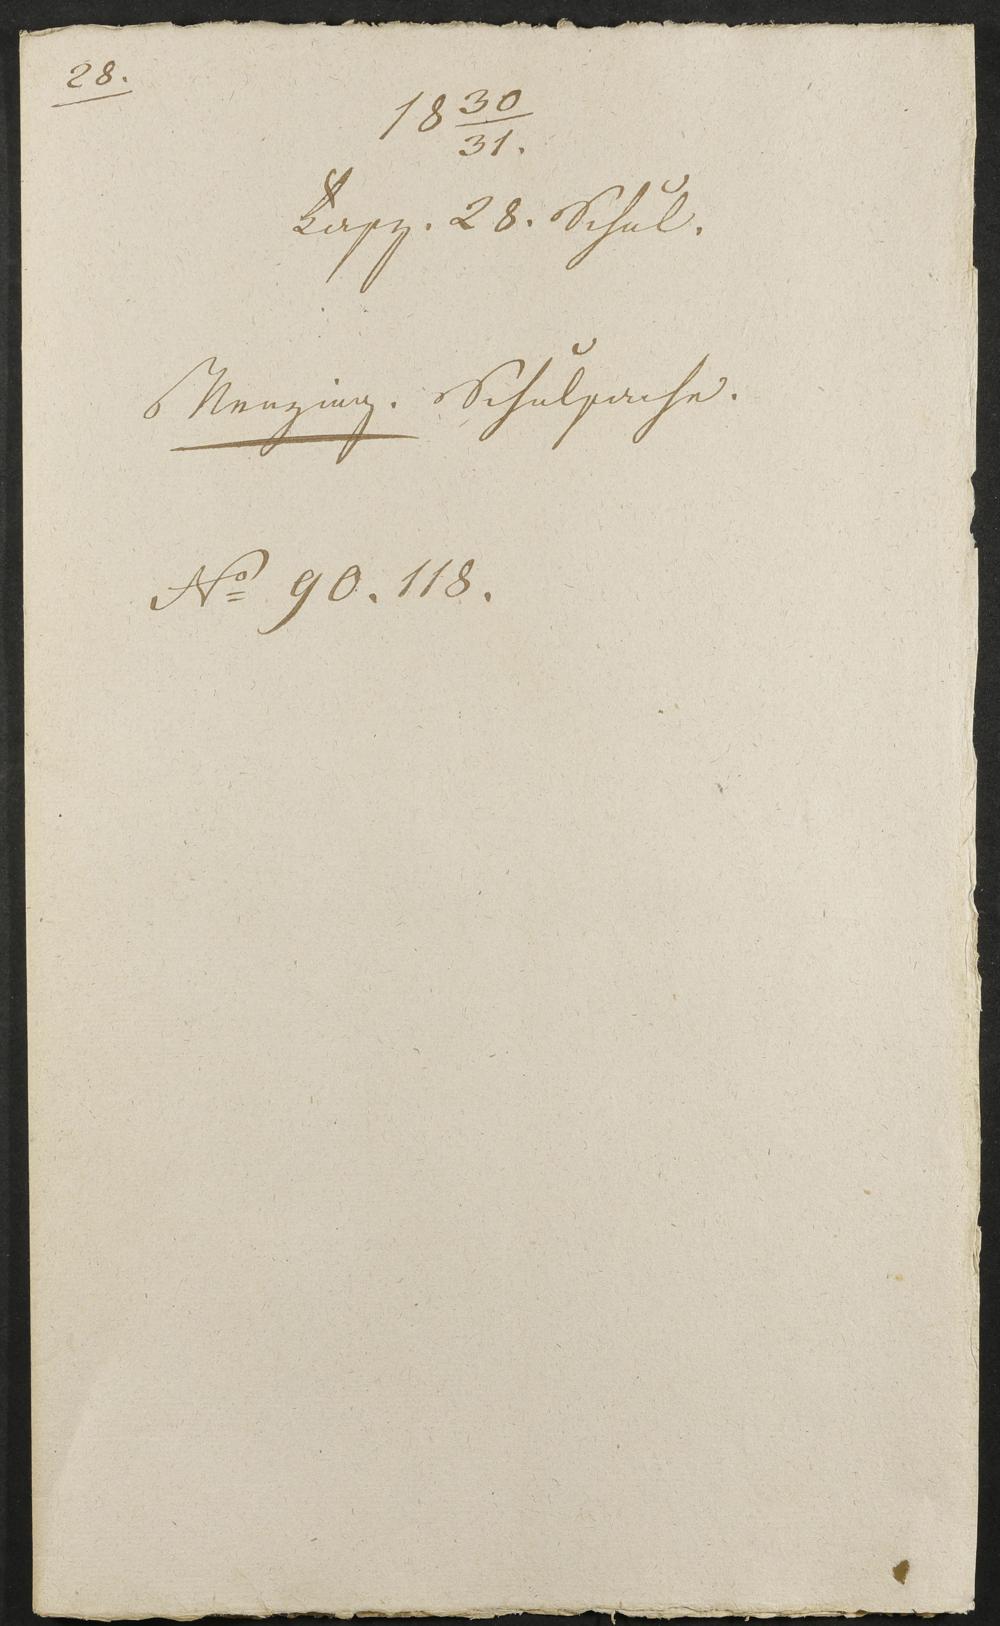 28.
18 30/31.
Kapz. 28. Schul.
Menzing. Schulsache.
No 90. 118.